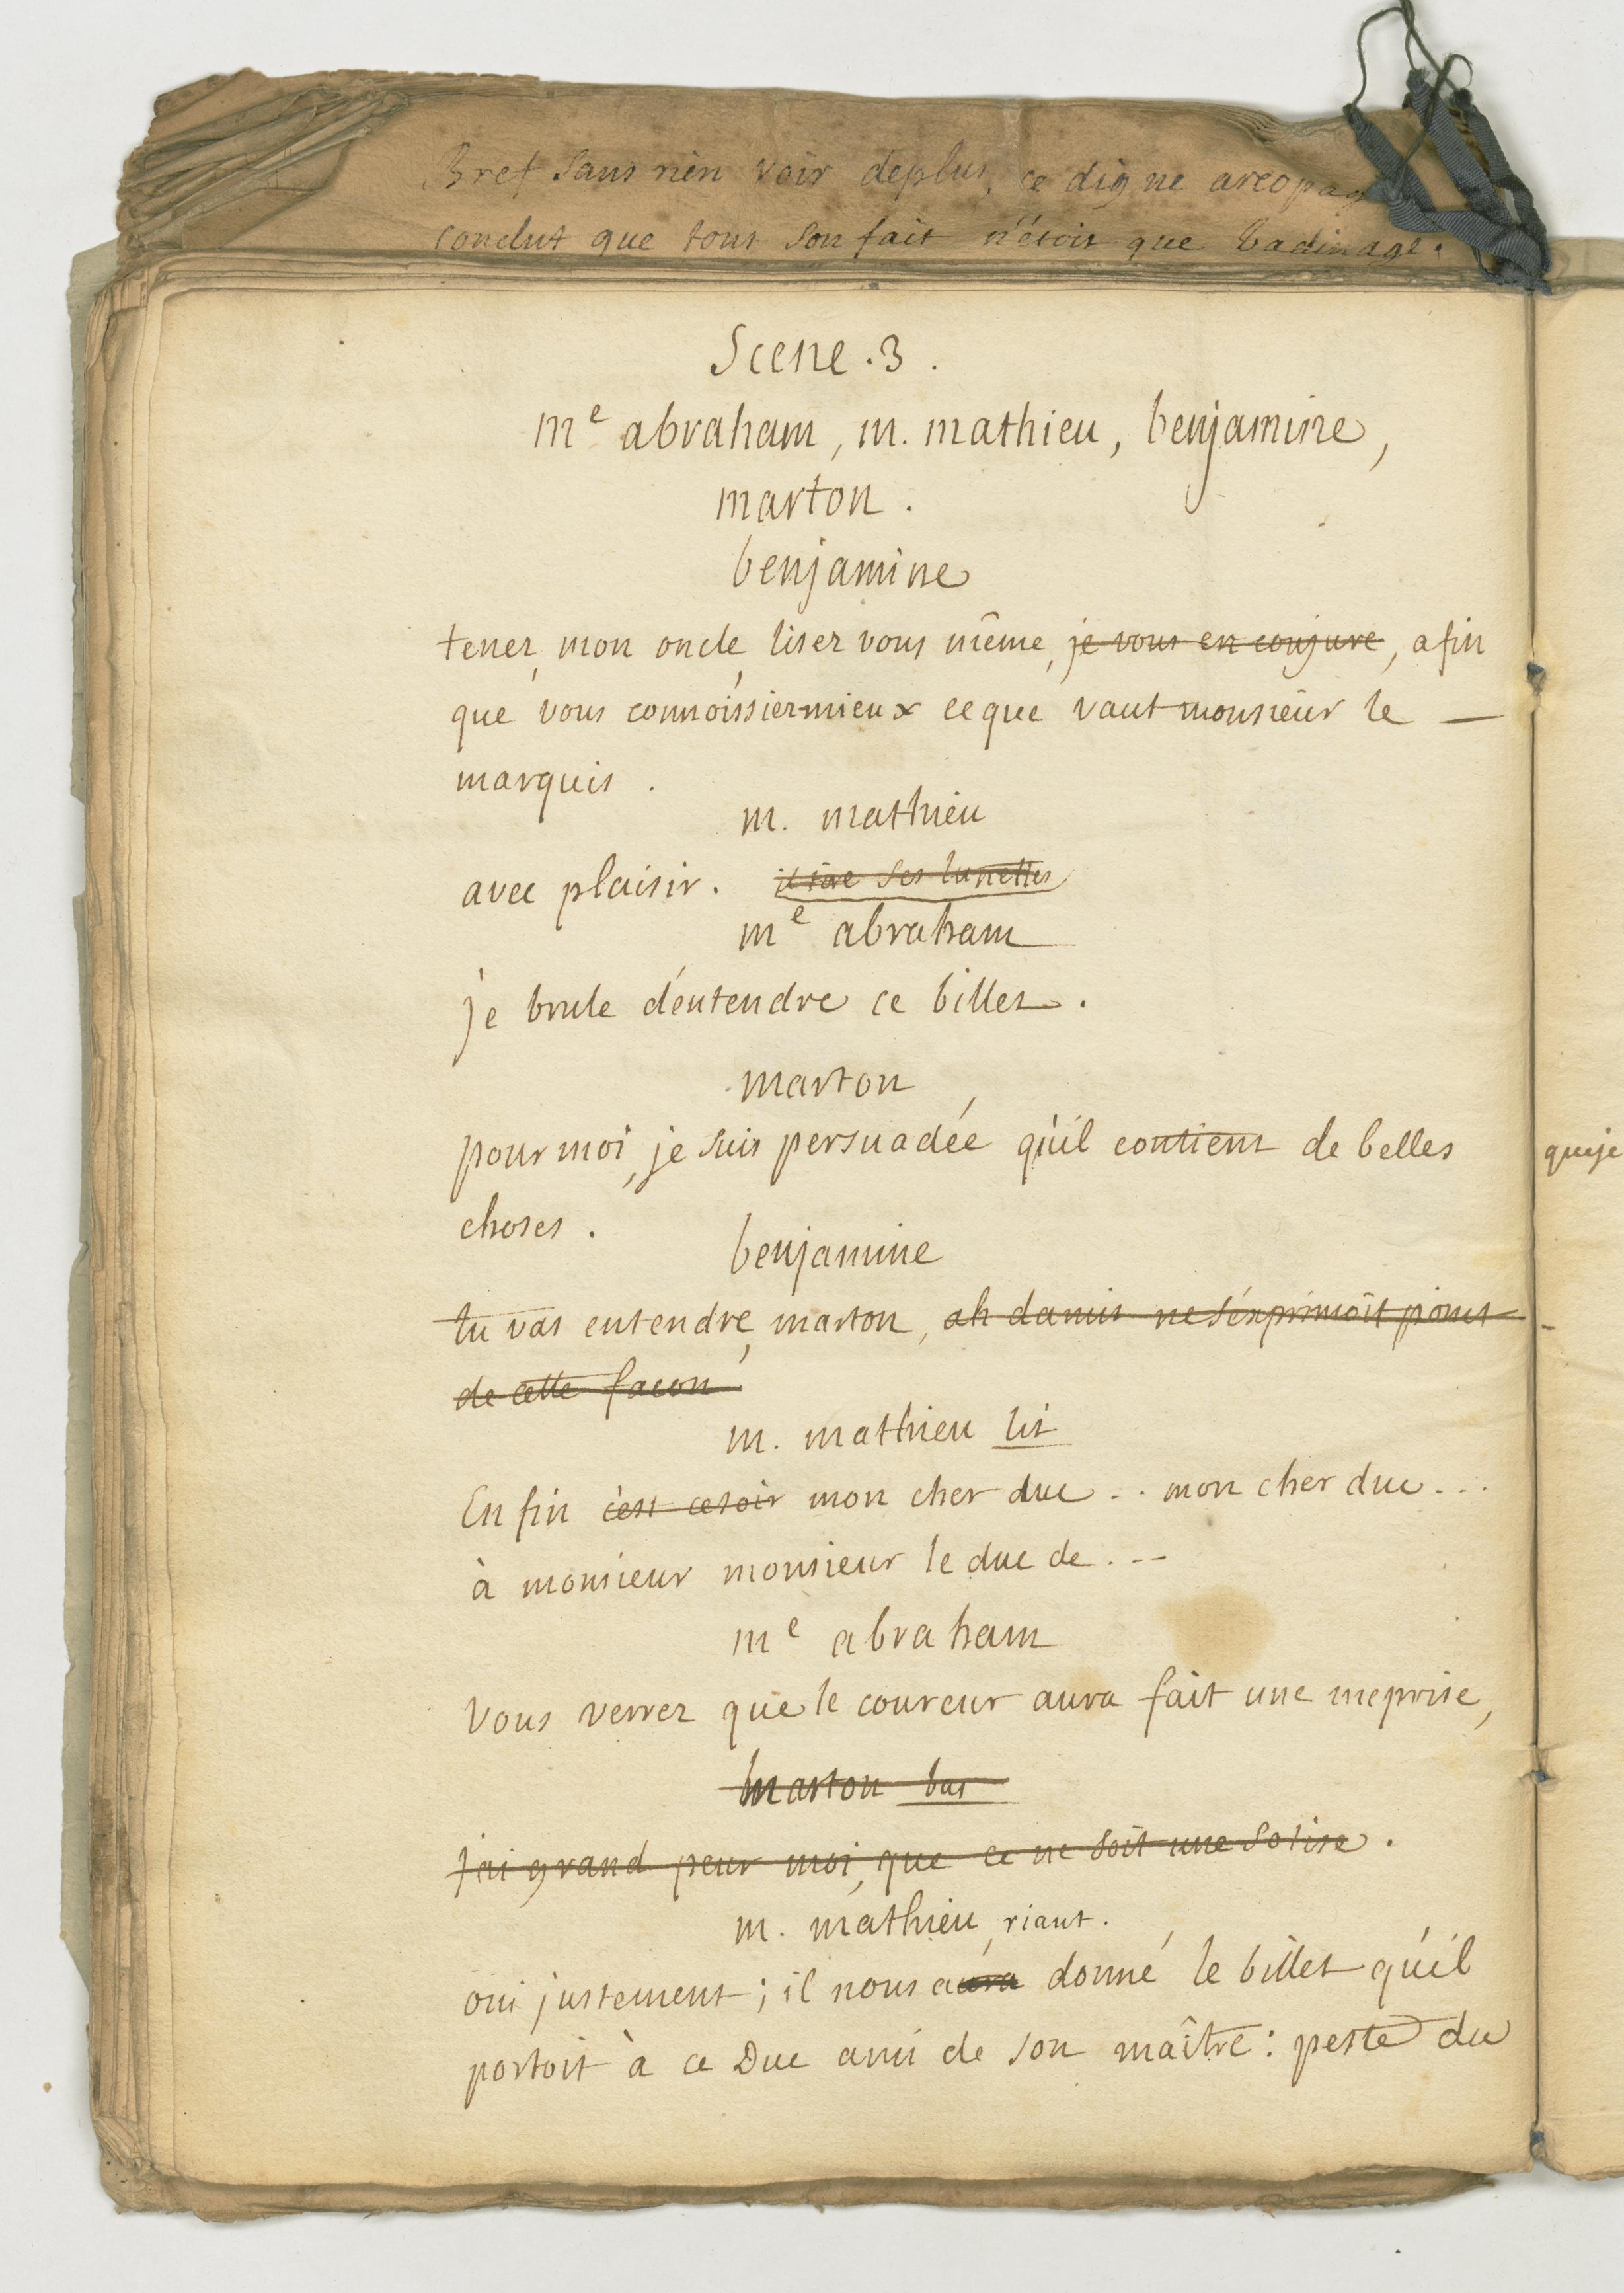 Bret sans rien voir deplus, ce digne areopag
conclut que tout son fait n'étoit que badinage.
Scene . 3 .
me abraham, m. mathieu, benjamine,
marton .
benjamine
tenez, mon oncle, lisez vous même, je vous en conjure, afin
que vous connoissiez mieux ce que vaut monsieur le —
marquis .
m. mathieu
avec plaisir . il tire ses lunettes
me abraham
je brule d'entendre ce billet .
marton
pour moi, je suis persuadée qu'il contient de belles
choses .
benjamine
tu vas entendre, marton, ah damis ne s'exprimoit point
de cette facon
m. mathieu lit
En fin c'est ce soir mon cher duc . . . mon cher duc . . .
à monsieur monsieur le duc de . . .
me abraham
Vous verrez que le coureur aura fait une meprise,
marton bas
j'ai grand peur moi, que ce ne soit une sotise .
m. mathieu, riant .
oui justement ; il nous aura donné le billet qu'il
portoit à ce Duc ami de son maître : peste du
que je